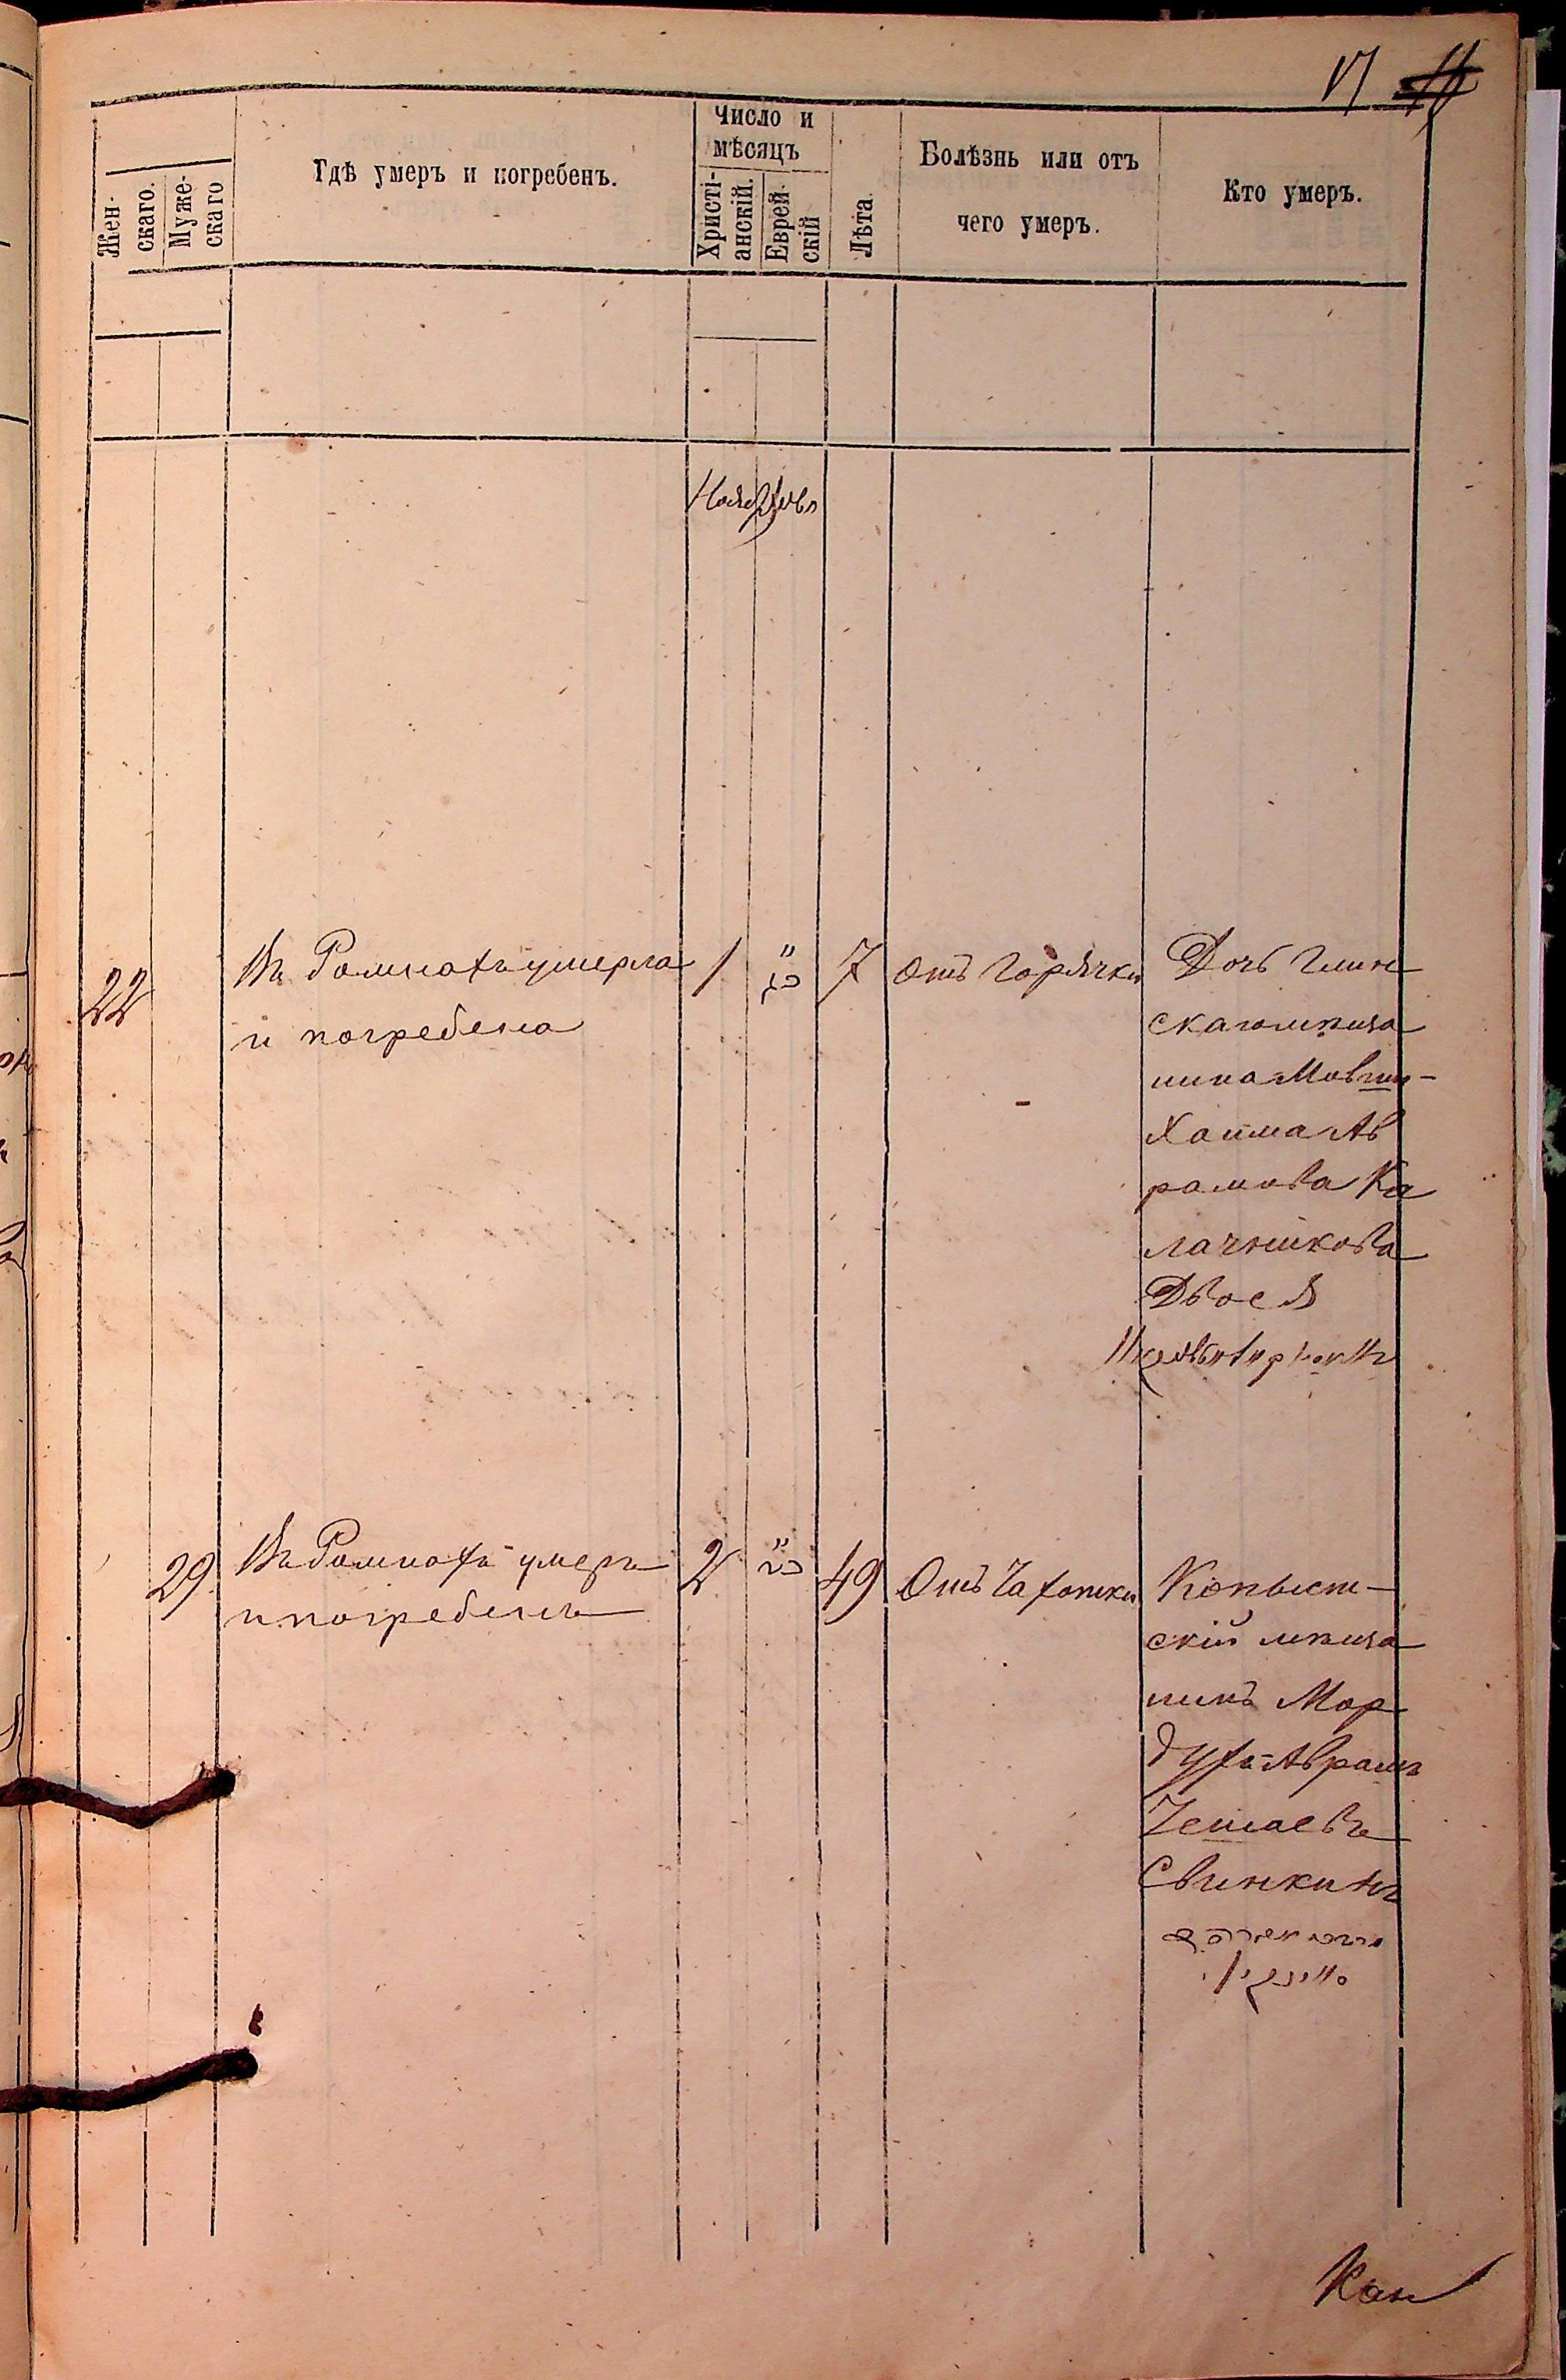 17
Жен-
скаго.
Муже-
скаго
Гдѣ умеръ и погребенъ.
Число и
мѣсяцъ
Христі-
анскій.
Еврей-
скій
Лѣта
Болѣзнь или отъ
чего умеръ.
Кто умеръ.
Ноябрь
22
Въ Ромнахъ умерла
и погребена
1
7
отъ горячки
Дочь Глин
скаго мѣща
нина Мовши-
Хаима Ав
рамова Ка
лачникова
Двося
29
Въ Ромнахъ умеръ
и погребенъ
2
49
Отъ Чахотки
Копыст-
скій мѣща
нинъ Мор
духъ Аврамъ
Свинкинъ
Каз